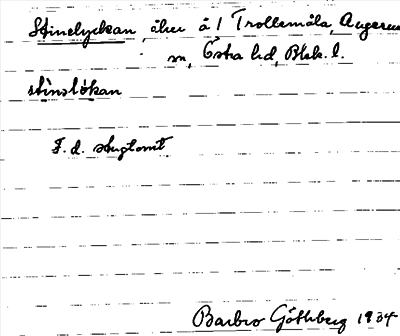 Stinelyckan, åker å 1 Trollemåla, Augerum
sn, Östra hd, Blek. l.
stìnslẏ́kan
F. d. slugtomt
Barbro Götlberg 1934